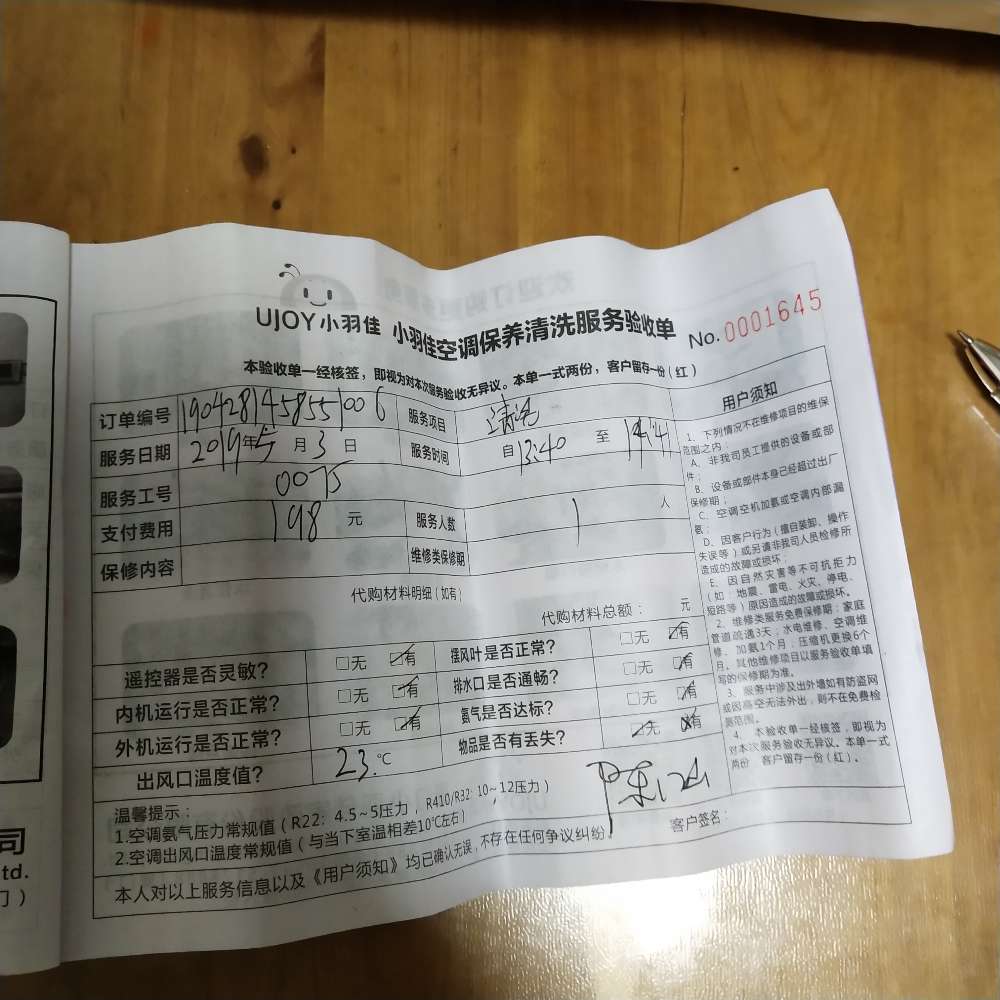 UJOY小羽佳 小羽佳空调保养清洗服务验收单 No.0001645
本验收单一经核签，即视为对本次服务验收无异议。本单一式两份，客户留存一份（红）
订单编号 1904281458551006 服务项目 清洗
服务日期 2019年5月3日 服务时间 自13:40至14:41
服务工号 0075
支付费用 198元 服务人数 1人
保修内容 维修类保修期
代购材料明细（如有）
代购材料总额： 元
遥控器是否灵敏？ □无 ☑有 摆风叶是否正常？ □无 ☑有
内机运行是否正常？ □无 ☑有 排水口是否通畅？ □无 ☑有
外机运行是否正常？ □无 ☑有 氨气是否达标？ □无 ☑有
出风口温度值？ 23.℃ 物品是否有丢失？ ☑无 有
温馨提示：
1.空调氨气压力常规值（R22：4.5~5压力，R410/R32：10~12压力）
2.空调出风口温度常规值（与当下室温相差10℃左右）
本人对以上服务信息以及《用户须知》均已确认无误，不存在任何争议纠纷。
客户签名：
用户须知
1、下列情况不在维修项目的维保
范围之内：
A、非我司员工提供的设备或部
件；
B、设备或部件本身已经超过出厂
保修期；
C、空调空机加氨或空调内部漏
氨；
D、因客户行为（擅自装卸、操作
失误等）或另请非我司人员检修所
造成的故障或损坏；
E、因自然灾害等不可抗拒力
（如：地震、雷电、火灾、停电、
短路等）原因造成的故障或损坏。
2、维修类服务免费保修期：家庭
管道疏通3天，水电维修、空调维
修、加氨1个月；压缩机更换6个
月。其他维修项目以服务验收单填
写的保修期为准。
3、服务中涉及出外墙如有防盗网
或因高空无法外出，则不在免费检
测范围。
4、本验收单一经核签，即视为
对本次服务验收无异议。本单一式
两份，客户留存一份（红）。
司
td.
门）